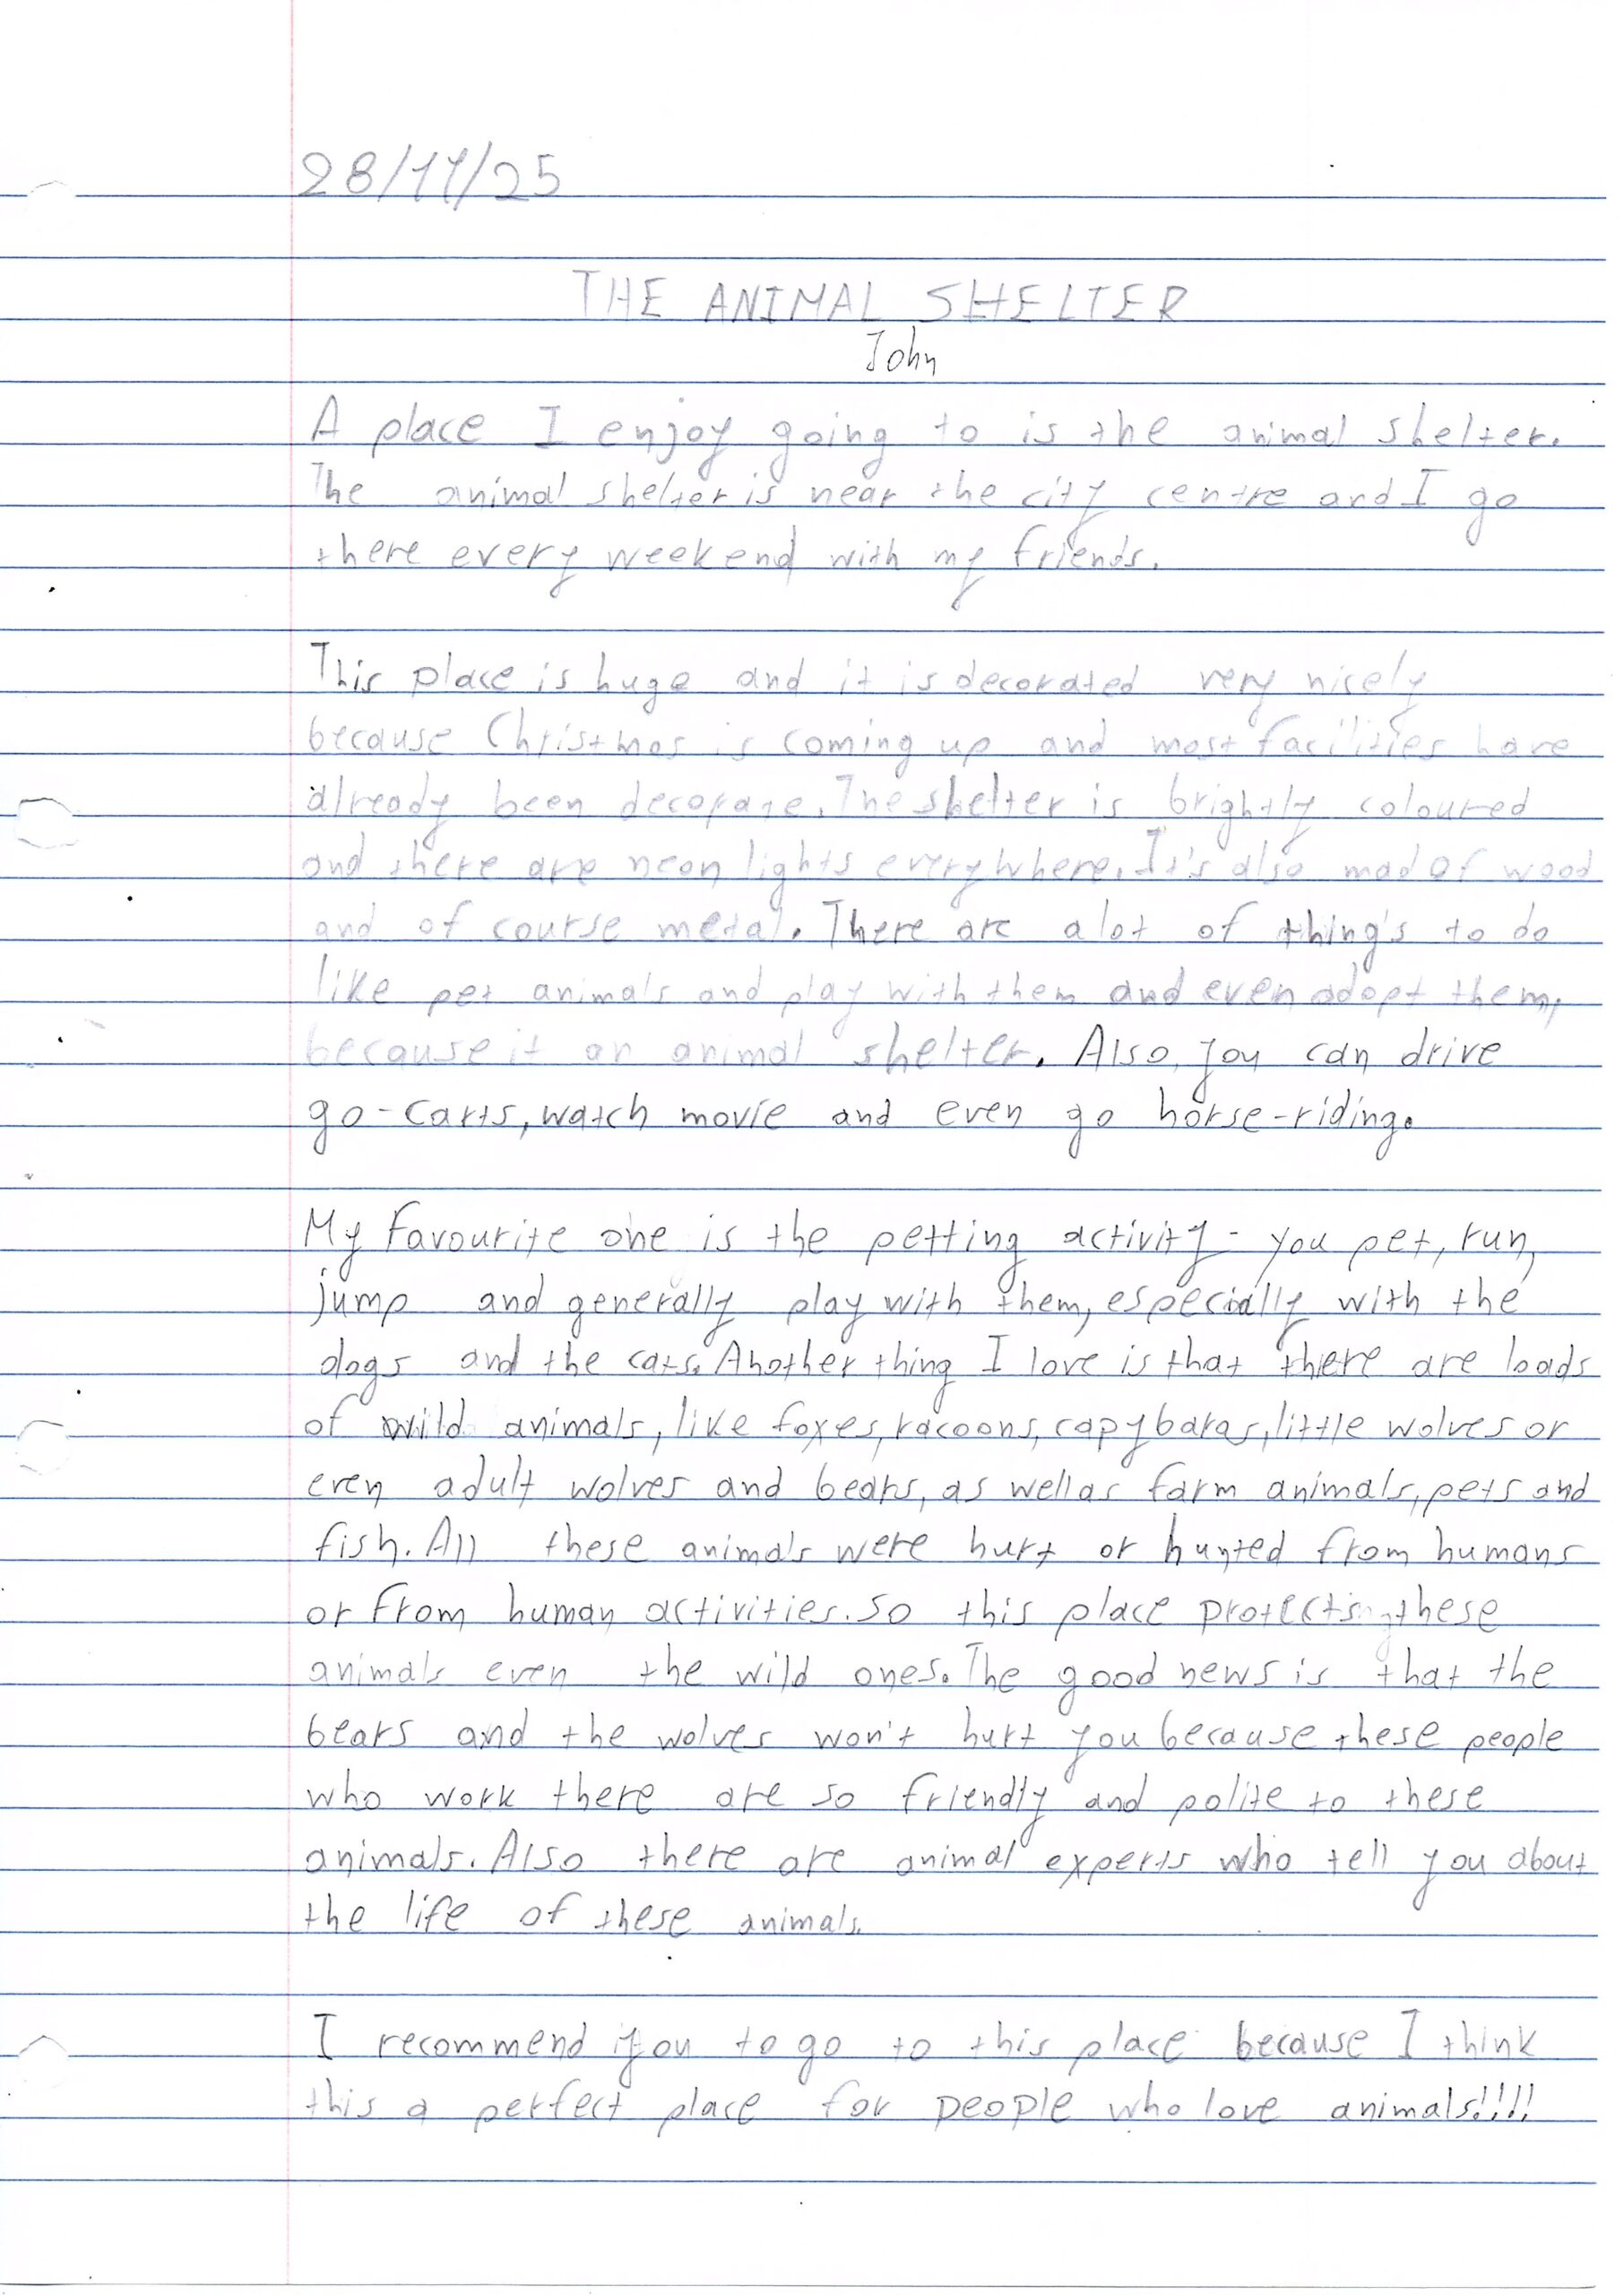 28/11/25
THE ANIMAL SHELTER
John
A place I enjoy going to is the animal shelter.
The animal shelter is near the city centre and I go
there every weekend with my friends.
This place is huge and it is decorated very nicely
because Christmas is coming up and most facilities have
already been decorate. The shelter is brightly coloured
and there are neon lights everywhere. It's also mad of wood
and of course metal. There are alot of thing's to do
like pet animals and play with them and even adopt them,
because it an animal shelter. Also, you can drive
go-carts, watch movie and even go horse-riding.
My favourite one is the petting activity - you pet, run,
jump and generally play with them, especially with the
dogs and the cats. Another thing I love is that there are loads
of wild animals, like foxes, racoons, capybaras, little wolves or
even adult wolves and bears, as well as farm animals, pets and
fish. All these animals were hurt or hunted from humans
or from human activities. So this place protects these
animals even the wild ones. The good news is that the
bears and the wolves won't hurt you because these people
who work there are so friendly and polite to these
animals. Also there are animal experts who tell you about
the life of these animals.
I recommend you to go to this place because I think
this a perfect place for people who love animals!!!!